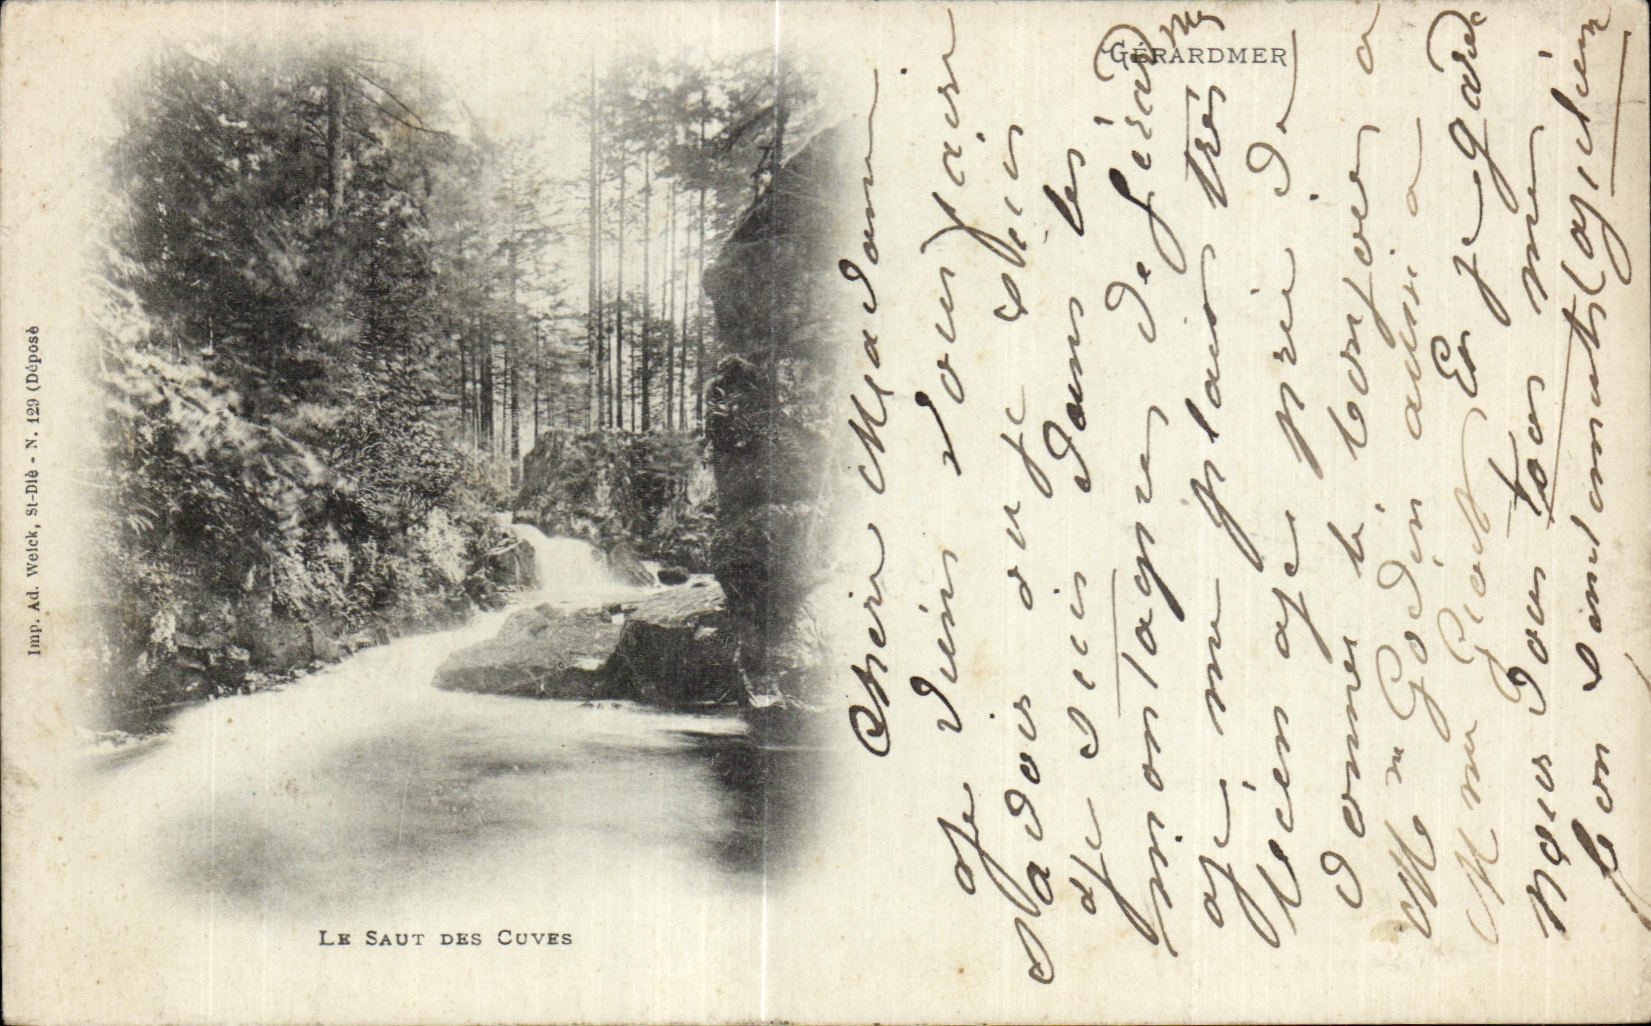 GÉRARDMER
Imp. Ad. Weick, St-Dié - N. 129 (Déposé
LE SAUT DES CUVES
Chère Madame
Je viens vous faire
Je suis dans les
montagnes de Gérardmer
Je me plais très
bien Je prie de
donner le bonjour a
Mr Godin ainsi a
Mme Et Je garde
pour vous tous mes
bon sentiments